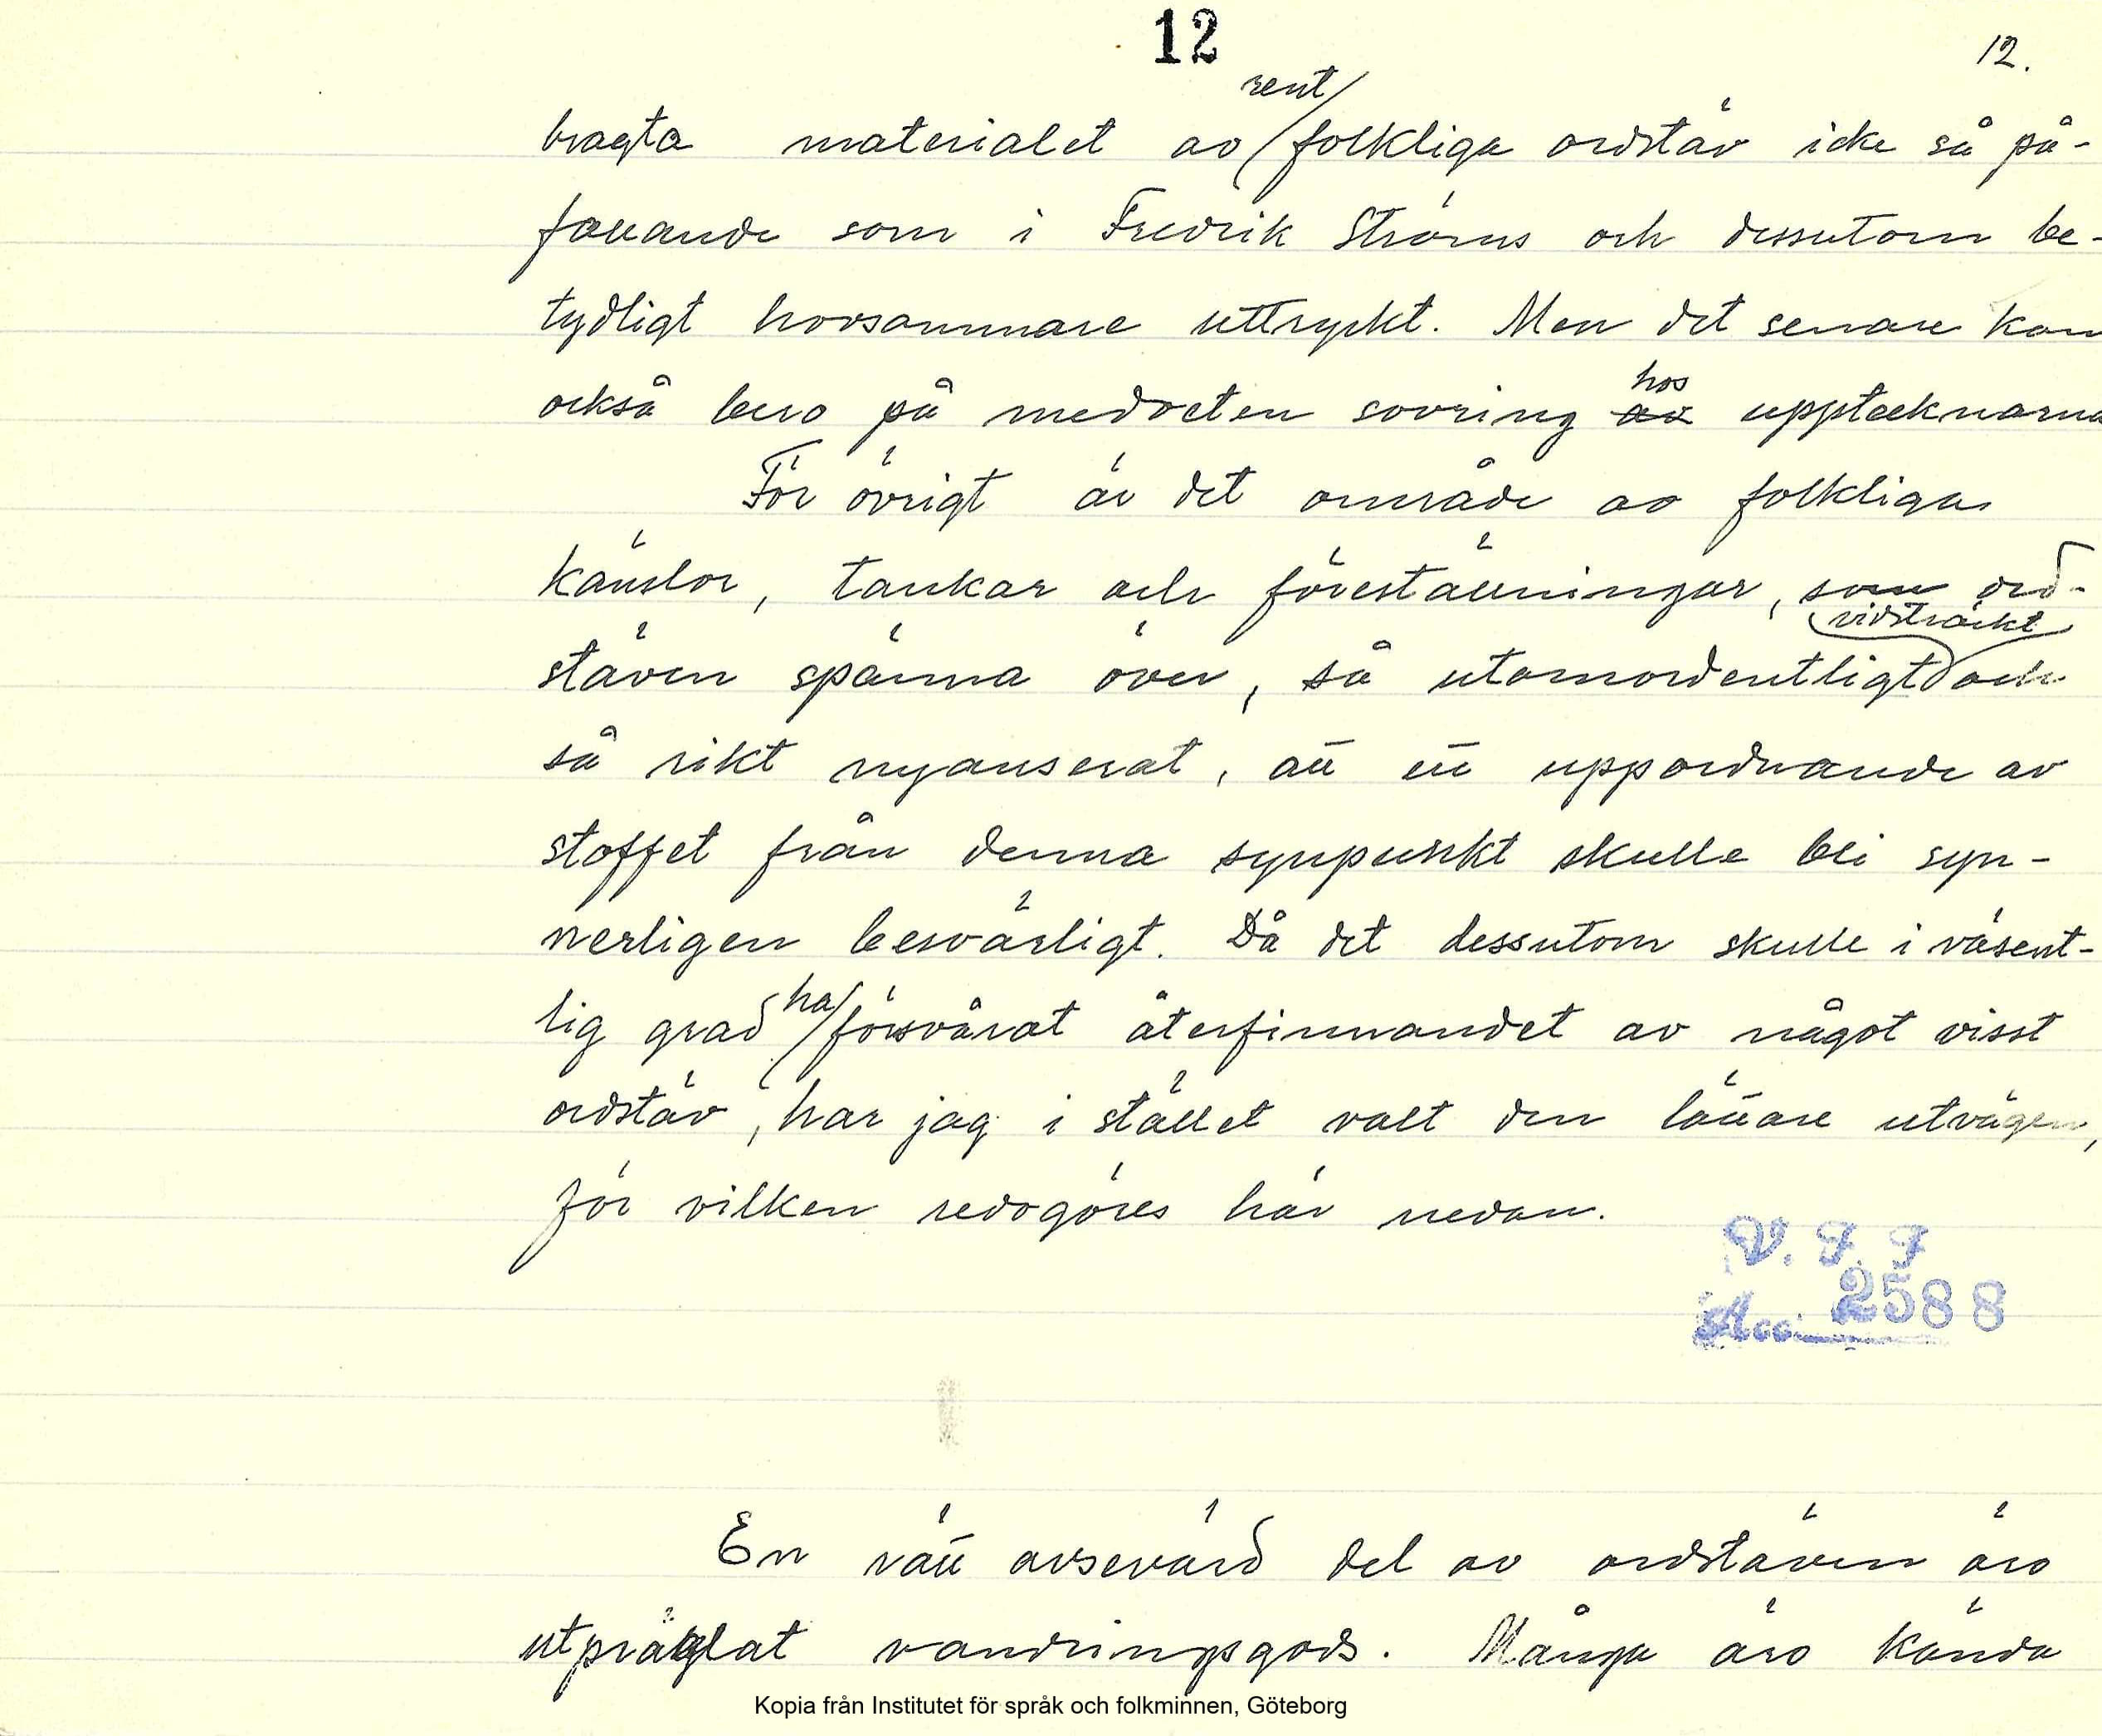 12
12.
rent
bragta materialet av folkliga ordstäv icke så på-
fallande som i Fredrik Ströms och dessutom be-
tydligt hovsammare uttryckt. Men det senare kan
också bero på medveten sovring hos
av upptecknarna
För övrigt är det område av folkliga
känslor, tankar och föreställningar, som ord-
vidsträckt
stäven spänna över, så utomordentligt och
så rikt nyanserat, att ett uppordnande av
stoffet från denna synpunkt skulle bli syn-
nerligen besvärligt. Då det dessutom skulle i väsent-
lig grad ha försvårat återfinnandet av något visst
ordstäv, har jag i stället valt den lättare utvägen,
för vilken redogöres här nedan.
V. F. F
Acc. 2588
En rätt avsevärd del av ordstäven äro
utpräglat vandringsgods. Många äro kända
Kopia från Institutet för språk och folkminnen, Göteborg